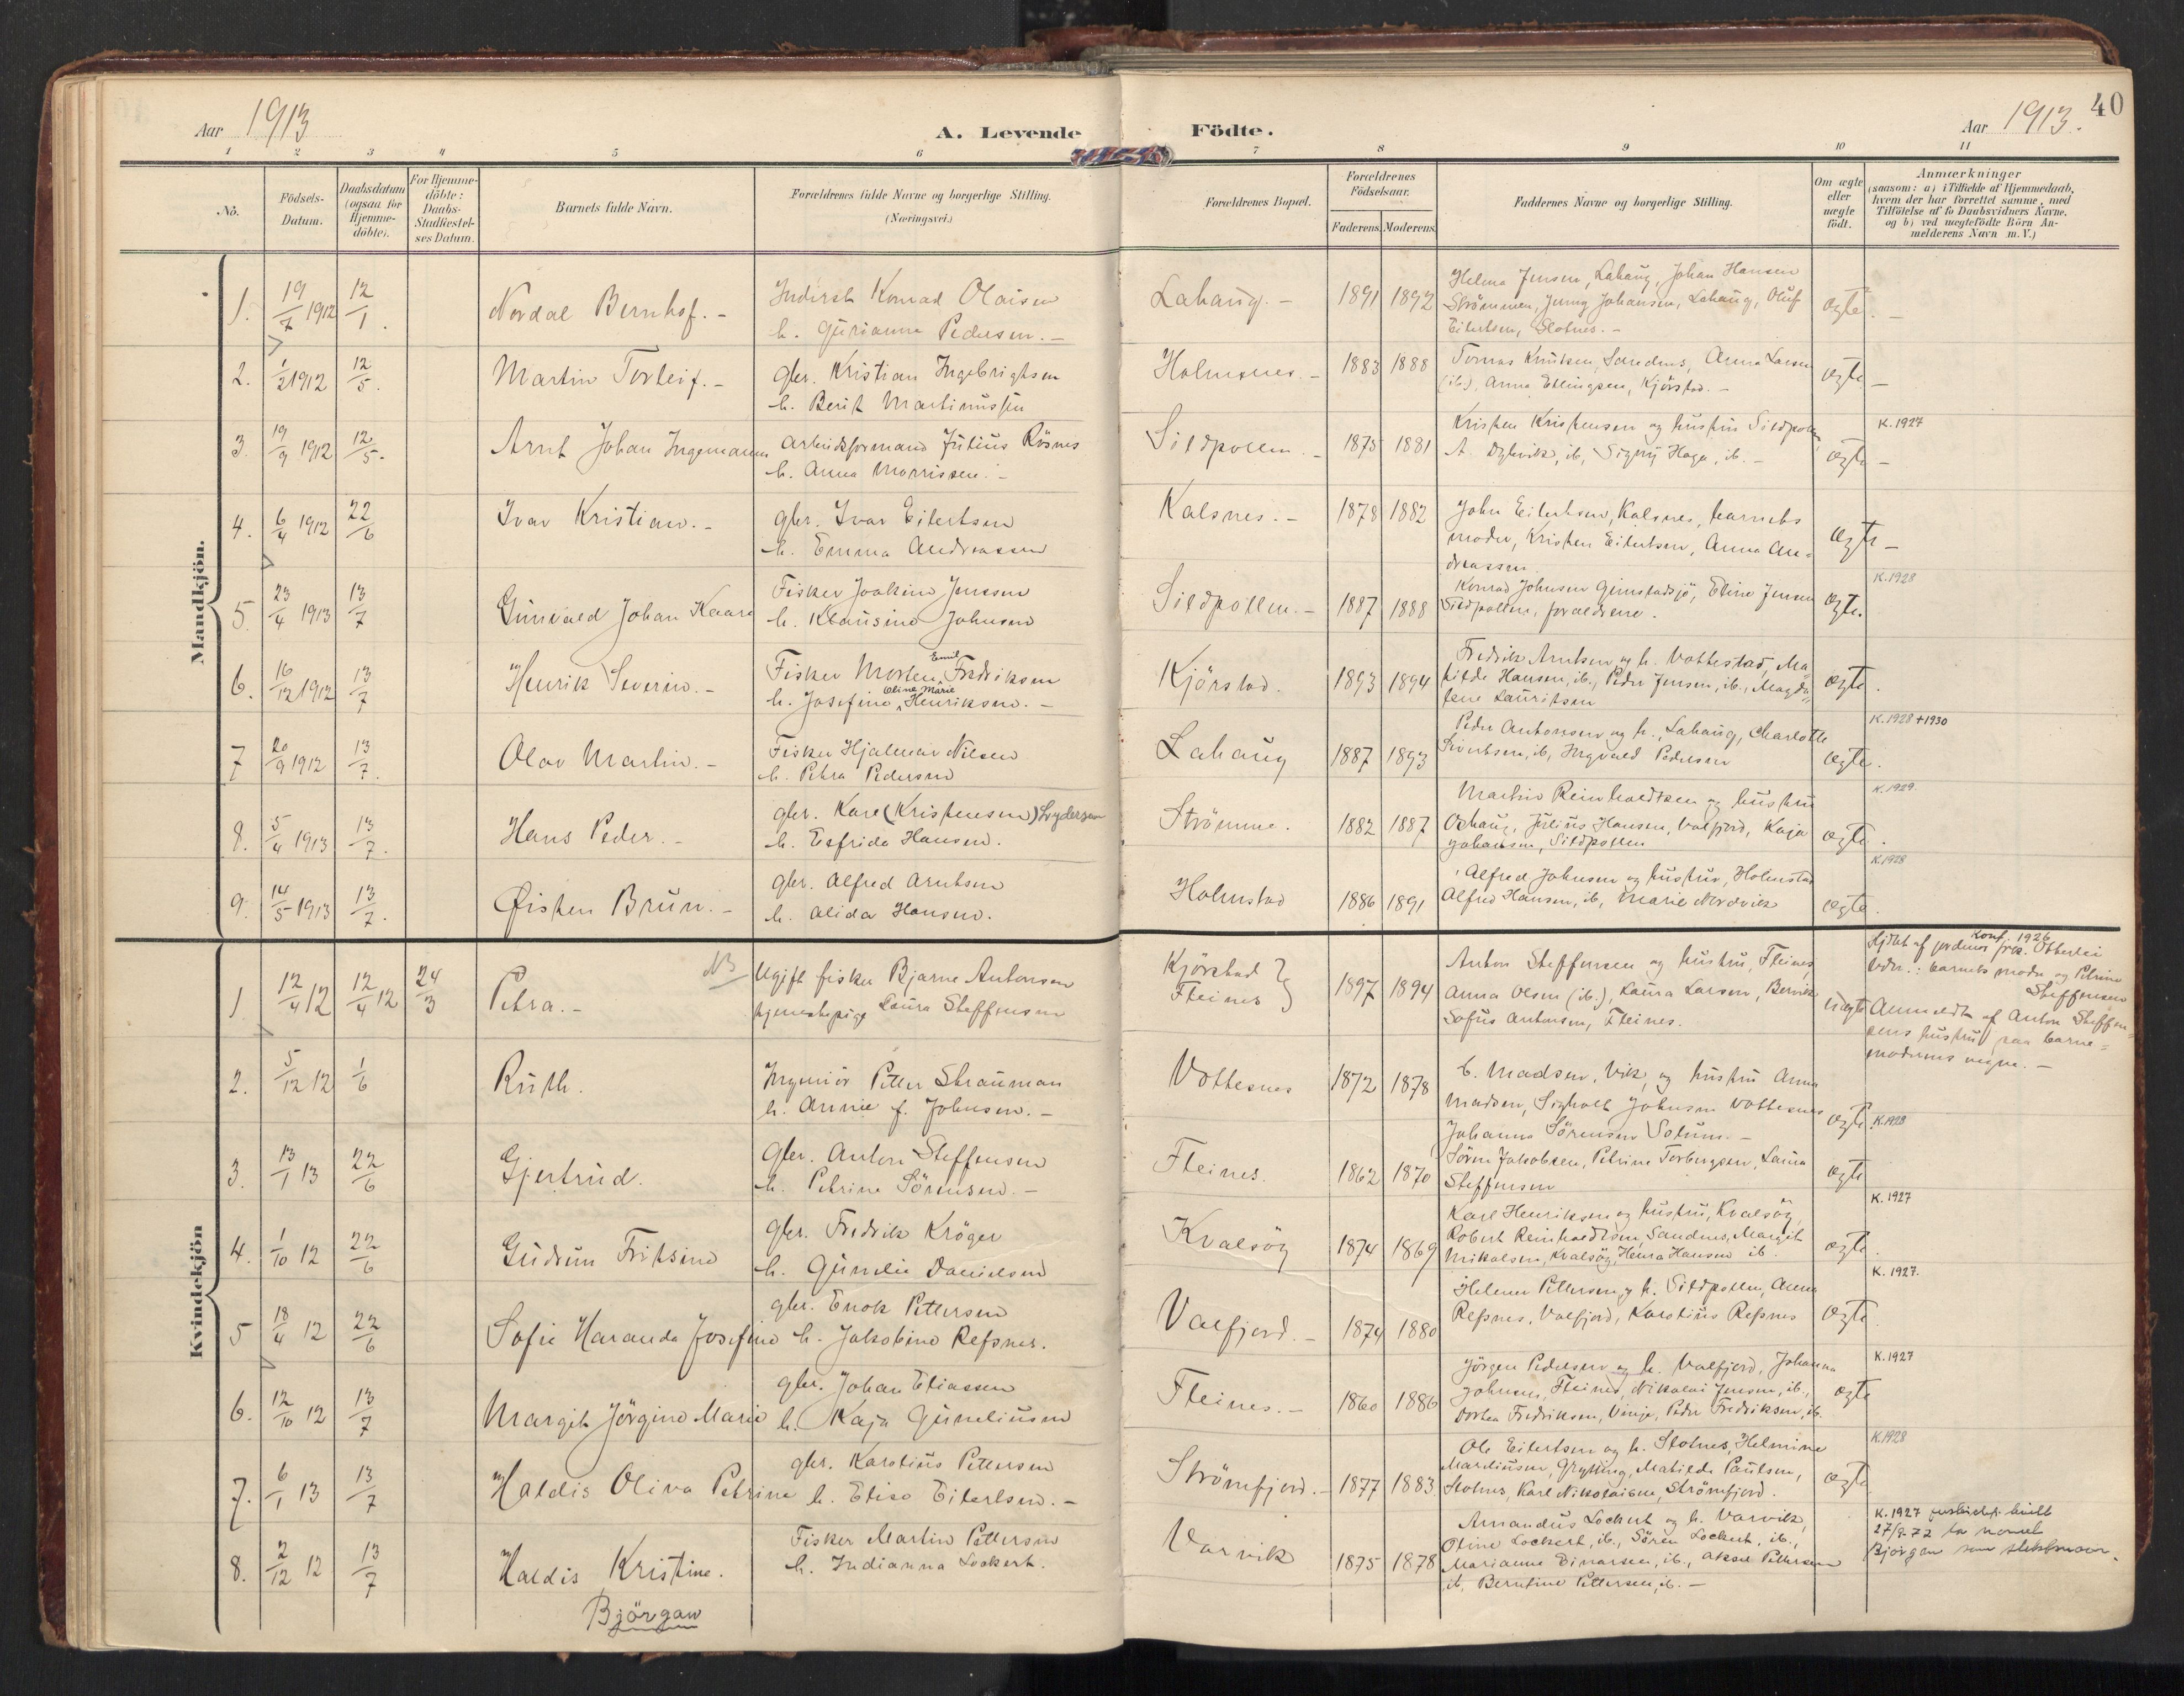 Aar 1913
A. Levende
Födte.
Aar 1913.
40
1 2 3 4 5 6 7 8 9 10 11
No.
Födsels-
Datum.
Daabsdatum
(ogsaa for
Hjemme-
döbte).
For Hjemme-
döbte:
Daabs-
Stadfæstel-
ses Datum.
Barnets fulde Navn.
Forældrenes fulde Navne og borgerlige Stilling.
(Næringsvei.)
Forældrenes Bopæl.
Forældrenes
Födselsaar.
Faderens. Moderens.
Faddernes Navne og borgerlige Stilling.
Om ægte
eller
uægte
födt.
Anmærkninger
(saasom: a) i Tilfælde af Hjemmedaab,
hvem der har forrettet samme, med
Tilföielse af to Daabsvidners Navne.
og b) ved uægtefödte Börn An-
melderens Navn m. V.)
Mandkjön.
1. 19/7 1912 12/1. Nordal Bernhof. - Inderst Konrad Olaisen
h. Gurianna Pedersen. -
Lahaug. - 1891 1892 Helma Jensen, Lahaug, Johan Hansen
Strömmen, Jenny Johansen, Lahaug, Oluf
Eilertsen, Slotnes. -
ægte. -
2. 1/2 1912 12/5. Martin Torleif. - gbr. Kristian Ingebrigtsen
h. Berit Martinussen
Holmsnes. - 1883 1888 Tomas Knutsen, Sandnes, Anna Larsen
(ib.), Anna Ellingsen, Kjörstad. -
ægte -
3. 19/9 1912 12/5. Arnt Johan Ingemann Arbeidsformand Julius Rösnes
h. Anna Morrissen. -
Sildpollen. - 1875 1881 Kristen Kristensen og hustru Sildpollen,
A. Dybvik, ib, Signy Haga, ib. -
ægte - K. 1927
4. 6/4 1912 22/6 Ivar Kristian. - gbr. Ivar Eilertsen
h. Emma Andreassen
Kalsnes. - 1878 1882 John Eilertsen, Kalsnes, barnets
moder, Kristen Eilertsen, Anna An-
dreassen.
ægte -
5. 23/4 1913 13/7 Gunvald Johan Kaare Fisker Joakim Jenssen
h. Klausine Johnsen
Sildpollen. - 1887 1888 Konrad Johnsen Gimstadsjö, Eline Jensen
Sildpollen, forældrene.
ægte. K. 1928
6. 16/12 1912 13/7 Henrik Severin. - Fisker Morten Emil Fredriksen
h. Josefine Oline Marie Henriksen. -
Kjörstad. 1893 1894 Fredrik Arntsen og h. Vottestad, Ma-
tilde Hansen, ib., Peder Jensen, ib., Magda-
lene Lauritsen
ægte.
7 20/9 1912 13/7. Olav Martin. - Fisker Hjalmar Nilsen
h. Petra Pedersen
Lahaug 1887 1893 Peder Antonsen og h., Lahaug, Charlotte
Sivertsen, ib, Ingvald Pedersen
ægte. K. 1928 + 1930
8. 5/4 1913 13/7. Hans Peder. - gbr. Karl (Kristensen) Lydersen
h. Elfrida Hansen.
Strömme. 1882 1887 Martin Reinholdtsen og hustru
Oshaug, Julius Hansen, Valfjord, Kaja
Johansen, Sildpollen
ægte. K. 1929.
9. 14/5 1913 13/7. Øisten Brün. - gbr. Alfred Arntsen
h. Alida Hansen.
Holmstad 1886 1891 Alfred Johnsen og hustru, Holmstad
Alfred Hansen, ib, Marie Nordvik
ægte. K. 1928
Kvindekjön
1 12/4 12 12/4 12 24/3 Petra. - NB Ugift fisker Bjarne Antonsen
tjenestepige Laura Steffensen
Kjörstad }
Fleines
1897 1894 Anton Steffensen og hustru, Fleines,
Anna Olsen (ib.), Laura Larsen, Bervik
Sofus Antonsen, Fleines.
uægte Konf. 1926
Hjdbt. af jordmor frk. Otterlei
vidn.: barnets moder og Petrine
Steffensen
Anmeldt af Anton Steffen-
sens hustru paa barne-
moderens vegne. -
2. 5/12 12 1/6 Ruth. Ingeniör Petter Strauman
h. Annie f. Johnsen. -
Vottesnes 1872 1878 C. Madsen, Vik, og hustru Anna
Madsen, Sigholt Johnsen Vottesnes
Johanna Sörensen Solum. -
ægte K. 1928
3. 13/1 13 22/6 Gjertrud. Gbr. Anton Steffensen
h. Petrine Sörensen. -
Fleines. 1862 1870 Sören Jakobsen, Petrine Torbergsen, Laura
Steffensen
ægte
4. 1/10 12 22/6 Gudrun Fritsine gbr. Fredrik Kröger
h. Gunelie Danielsen
Kvalsöy 1874 1869 Karl Henriksen og hustru, Kvalsöy,
Robert Reinholdtsen, Sandnes, Margit
Nikolaisen, Kvalsöy, Henra Hansen ib.
ægte. K. 1927
5 18/4 12 22/6 Sofie Haranda Josefine gbr. Enok Pettersen
h. Jakobine Refsnes.
Valfjord. - 1874 1880 Helmer Pettersen og h. Sildpollen, Anna
Refsnes, Valfjord, Karolius Refsnes
ægte. K. 1927.
6. 12/10 12 13/7 Margit Jörgine Marie gbr. Johan Eliassen
h. Kaja Guneliusen
Fleines. - 1860 1886 Jörgen Pedersen og h. Valfjord, Johanna
Johnsen, Fleines, Nikolai Jensen, ib.,
Dortea Fredriksen, Vinje, Peder Fredriksen, ib.
ægte K. 1927
7. 6/1 13 13/7 Haldis Oliva Petrine gbr. Karolius Pettersen
h. Elise Eilertsen. -
Strömfjord. - 1877 1883. Ole Eilertsen og h. Slotnes, Helmine
Mardiusen, Grytting, Matilde Paulsen,
Slotnes, Karl Nikolaisen, Strömfjord.
ægte K. 1928
8. 2/12 12 13/7 Haldis Kristine.
Björgan
Fisker Martin Pettersen
h. Indianna Lockert.
Varvik 1875 1878 Amandus Lockert og h. Varvik,
Oline Lockert, ib., Sören Lockert, ib.,
Marianne Einarsen, ib., Aksel Pettersen
ib, Berntine Pettersen, ib. -
K. 1927
27/7.72 navnet
Bjørgan som slektsnavn.